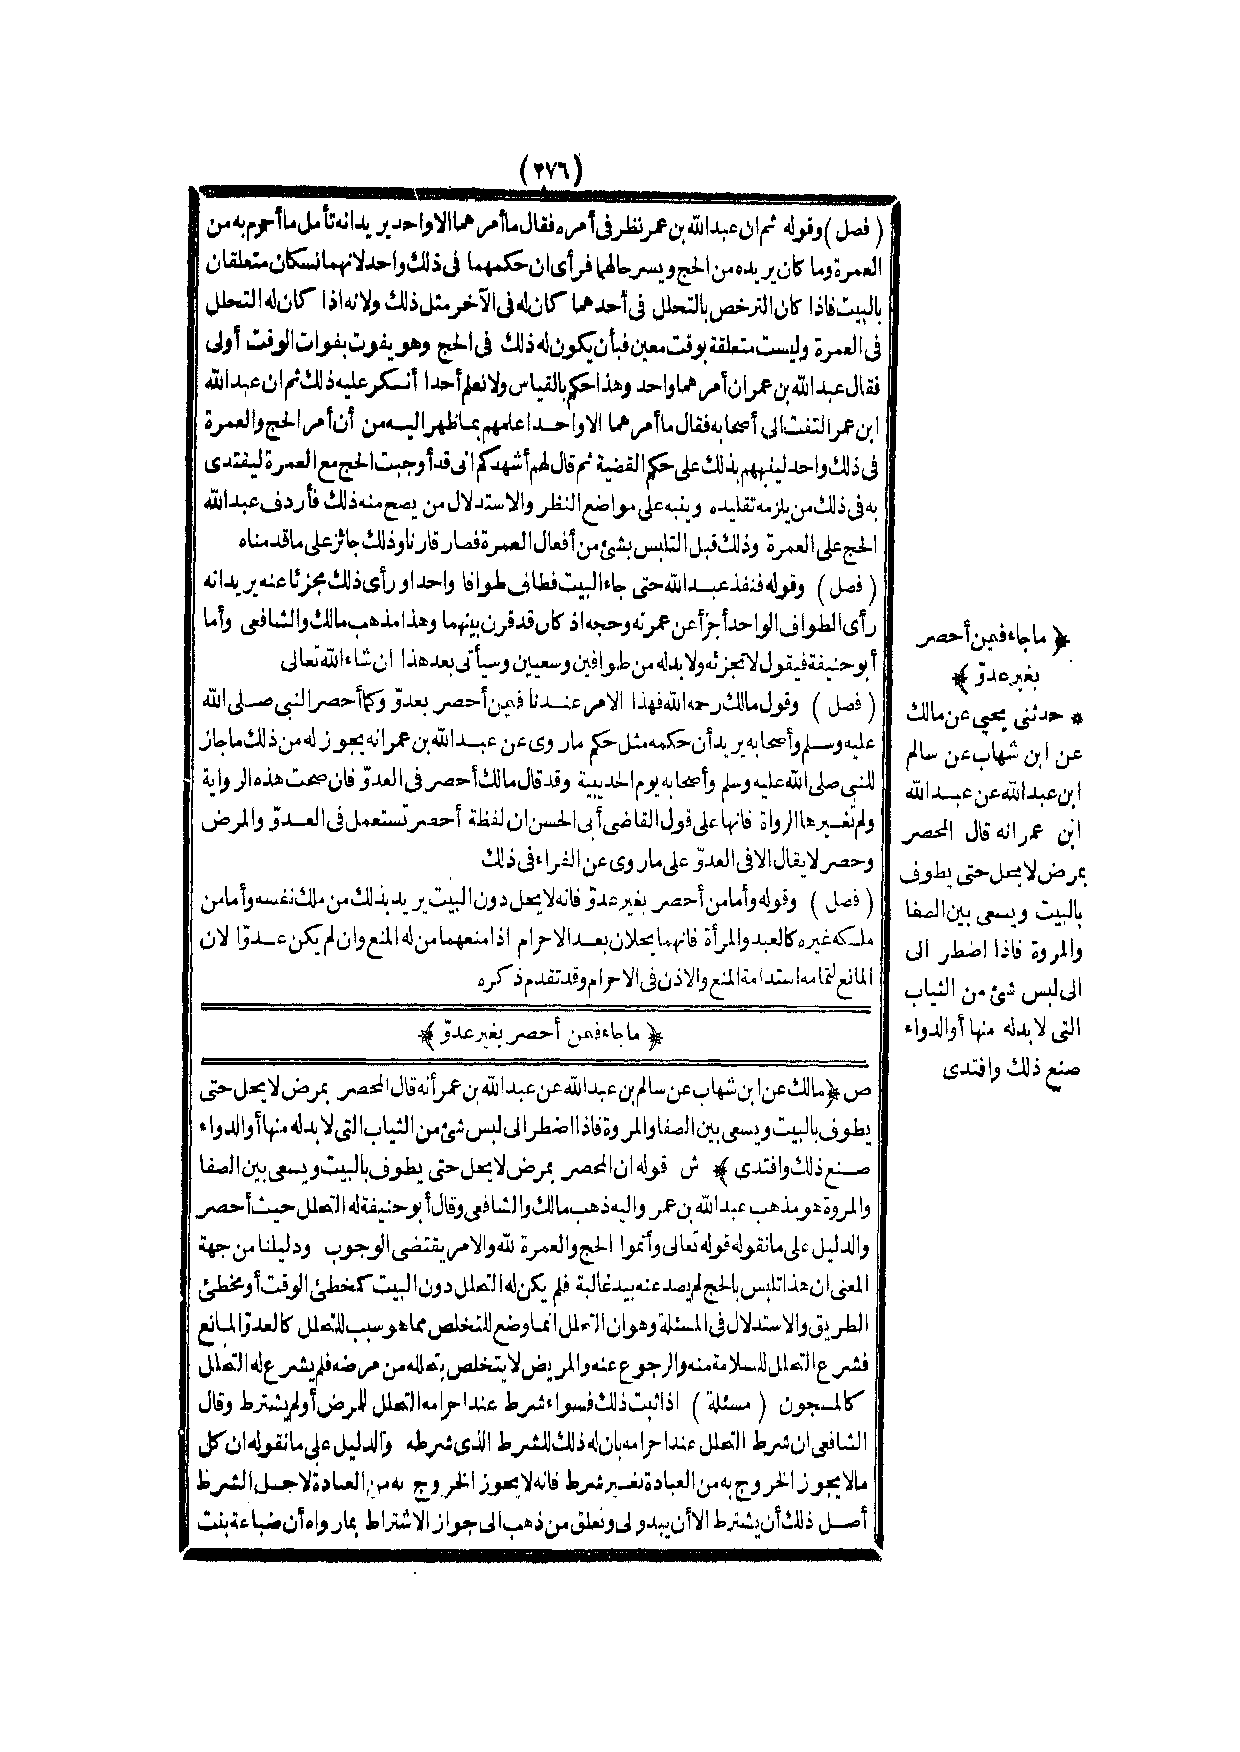 (٢٧٦)
( فصل ) وقوله ثم ان عبد الله بن عمر نظر فى أمره فقال ما أمرهما الا واحد يريد انه تأمل ما أحرم به من
العمرة وما كان يريده من الحج ويسر حالهما فرأى ان حكمهما فى ذلك واحد لانهما نسكان متعلقان
بالبيت فاذا كان الترخص بالتحلل فى أحدهما كان له فى الآخر مثل ذلك ولانه اذا كان له التحلل
فى العمرة وليست متعلقة بوقت معين فبأن يكون له ذلك فى الحج وهو يفوت بفوات الوقت أولى
فقال عبد الله بن عمر ان أمرهما واحد وهذا حكم بالقياس ولا نعلم أحدا أنكر عليه ذلك ثم ان عبد الله
ابن عمر التفت الى أصحابه فقال ما أمرهما الا واحد اعلمهم بما ظهر اليه من أن أمر الحج والعمرة
فى ذلك واحد لينبههم بذلك على حكم القضية ثم قال لهم أشهدكم انى قد أوجبت الحج مع العمرة ليقتدى
به فى ذلك من يلزمه تقليده وينبه على مواضع النظر والاستدلال من يصح منه ذلك فأردف عبد الله
الحج على العمرة وذلك قبل التلبس بشئ من أفعال العمرة فصار قارنا وذلك جائز على ما قدمناه
( فصل ) وقوله فنفذ عبد الله حتى جاء البيت فطاف طوافا واحدا ورأى ذلك مجزئا عنه يريد انه
رأى الطواف الواحد أجزأ عن عمرته وحجه اذ كان قد قرن بينهما وهذا مذهب مالك والشافعى وأما
أبو حنيفة فيقول لا تجزئه ولا بد له من طوافين وسعيين وسيأتى بعد هذا ان شاء الله تعالى
( فصل ) وقول مالك رحمه الله فهذا الامر عندنا فيمن أحصر بعدوّ وكما أحصر النبى صلى الله
عليه وسلم وأصحابه يريد أن حكمه مثل حكم ما روى عن عبد الله بن عمر انه يجوز له من ذلك ما جاز
للنبى صلى الله عليه وسلم وأصحابه يوم الحديبية وقد قال مالك أحصر فى العدوّ فان صحت هذه الرواية
ولم تغيرها الرواة فانها على قول القاضى أبى الحسن ان لفظة أحصر تستعمل فى العدوّ والمرض
وحصر لا يقال الا فى العدوّ على ما روى عن الفراء فى ذلك
( فصل ) وقوله وأما من أحصر بغير عدوّ فانه لا يحل دون البيت يريد بذلك من ملك نفسه وأما من
ملكه غيره كالعبد والمرأة فانهما يحلان بعد الاحرام اذا منعهما من له المنع وان لم يكن عدوّا لان
المانع لتمامه استدامة المنع والاذن فى الاحرام وقد تقدم ذكره
﴿ ما جاء فيمن أحصر بغير عدوّ ﴾
ص ﴿ مالك عن ابن شهاب عن سالم بن عبد الله عن عبد الله بن عمر أنه قال المحصر بمرض لا يحل حتى
يطوف بالبيت ويسعى بين الصفا والمروة فاذا اضطر الى لبس شئ من الثياب التى لا بد له منها أو الدواء
صنع ذلك وافتدى ﴾ ش قوله ان المحصر بمرض لا يحل حتى يطوف بالبيت ويسعى بين الصفا
والمروة هو مذهب عبد الله بن عمر واليه ذهب مالك والشافعى وقال أبو حنيفة له التحلل حيث أحصر
والدليل على ما نقوله قوله تعالى وأتموا الحج والعمرة لله والامر يقتضى الوجوب ودليلنا من جهة
المعنى ان هذا تلبس بالحج لم يصد عنه بيد غالبة فلم يكن له التحلل دون البيت كمخطئ الوقت أو مخطئ
الطريق والاستدلال فى المسئلة وهو ان التحلل انما وضع للتخلص مما هو سبب للتحلل كالعدوّ المانع
فشرع التحلل للسلامة منه والرجوع عنه والمريض لا يتخلص بتحلله من مرضه فلم يشرع له التحلل
كالمسجون ( مسئلة ) اذا ثبت ذلك فسواء شرط عند احرامه التحلل للمرض أو لم يشترط وقال
الشافعى ان شرط التحلل عند احرامه بان له ذلك للشرط الذى شرطه والدليل على ما نقوله ان كل
ما لا يجوز الخروج به من العبادة بغير شرط فانه لا يجوز الخروج به من العبادة لاجل الشرط
أصل ذلك أن يشترط الا أن يبدو لى وتعلق من ذهب الى جواز الاشتراط بما رواه أن ضباعة بنت
﴿ ما جاء فيمن أحصر
بغير عدوّ ﴾
* حدثنى يحيى عن مالك
عن ابن شهاب عن سالم
ابن عبد الله عن عبد الله
ابن عمر انه قال المحصر
بمرض لا يحل حتى يطوف
بالبيت ويسعى بين الصفا
والمروة فاذا اضطر الى
الى لبس شئ من الثياب
التى لا بد له منها أو الدواء
صنع ذلك وافتدى